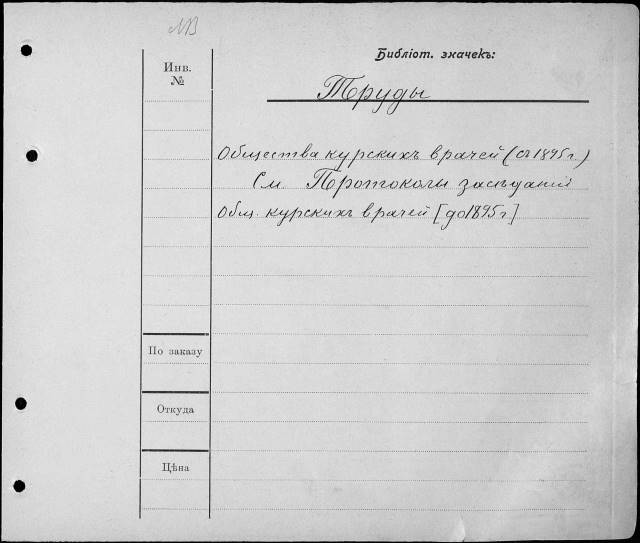 NB
Библіот. значекъ:
Инв.
№
Труды
Общества курскихъ врачей (съ 1895 г.)
См. Протоколы засѣданій
Общ. курскихъ врачей [до 1895 г]
По заказу
Откуда
Цѣна